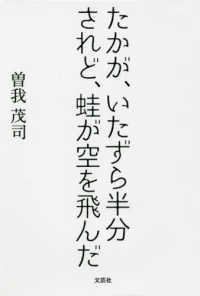 たかが、いたずら半分
されど、蛙が空を飛んだ
曽我 茂司
文芸社